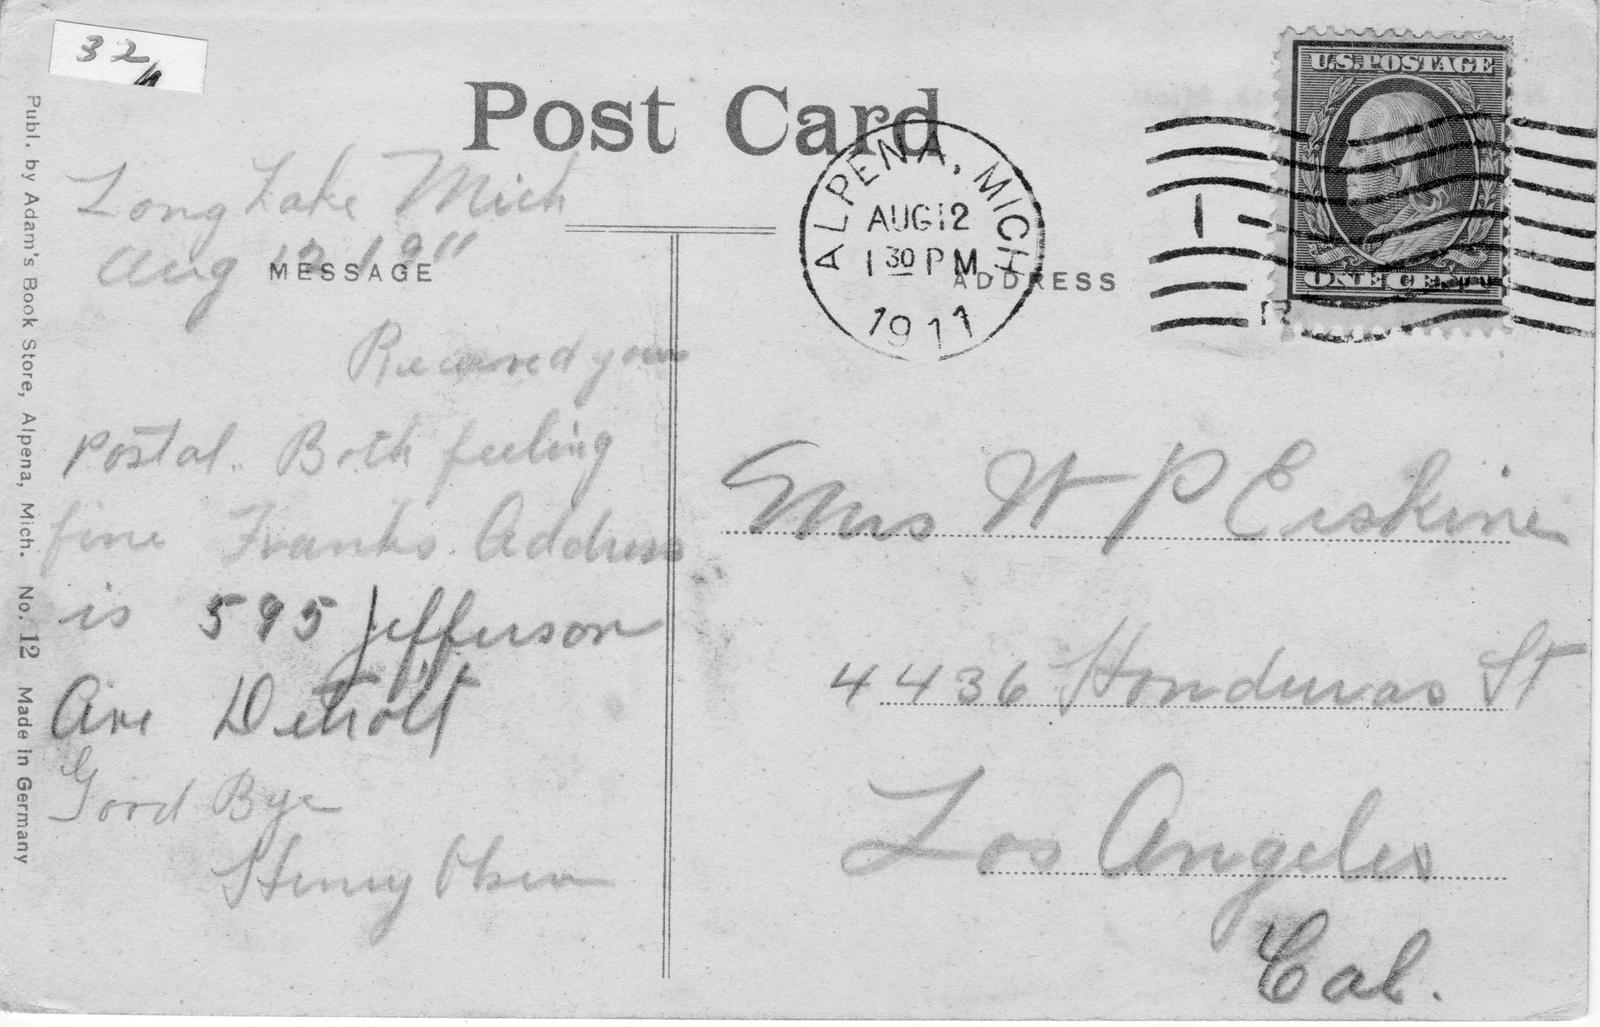 32
Post Card
Publ. by Adam's Book Store, Alpena, Mich. No. 12 Made in Germany
Long Lake Mich
Aug 12 1911
MESSAGE
Received your
postal. Both feeling
fine Franks Address
is 595 Jefferson
Ave Detroit
Good Bye
Henry Olsen
ALPENA, MICH
AUG 12
1 30 PM
1911
U.S. POSTAGE
ONE CENT
1
ADDRESS
Mrs W P Erskine
4436 Honduras St
Los Angeles
Cal.